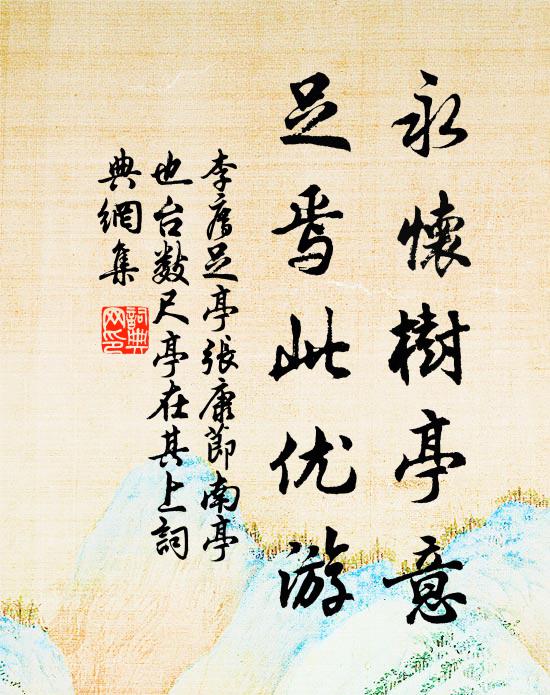 永懷樹亭意
足焉此优游
李廌足亭張康節南亭
也台数尺亭在其上詞
典網集
詞典网印